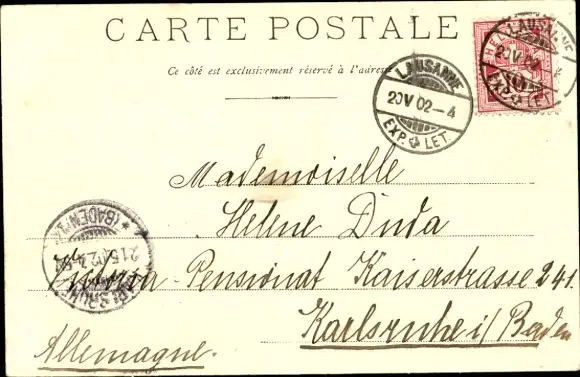 CARTE POSTALE
Ce côté est exclusivement réservé à l'adresse
LAUSANNE
20 V 02-4
EXP. LET.
LAUSANNE
20 V 02
EXP. LET.
HEL
Mademoiselle
Helene Duda
Pensionat Kaiserstrasse 241.
Karlsruhe i/ Baden
Allemagne.
(BADEN) 1
21.5.02.
KARLSRUHE